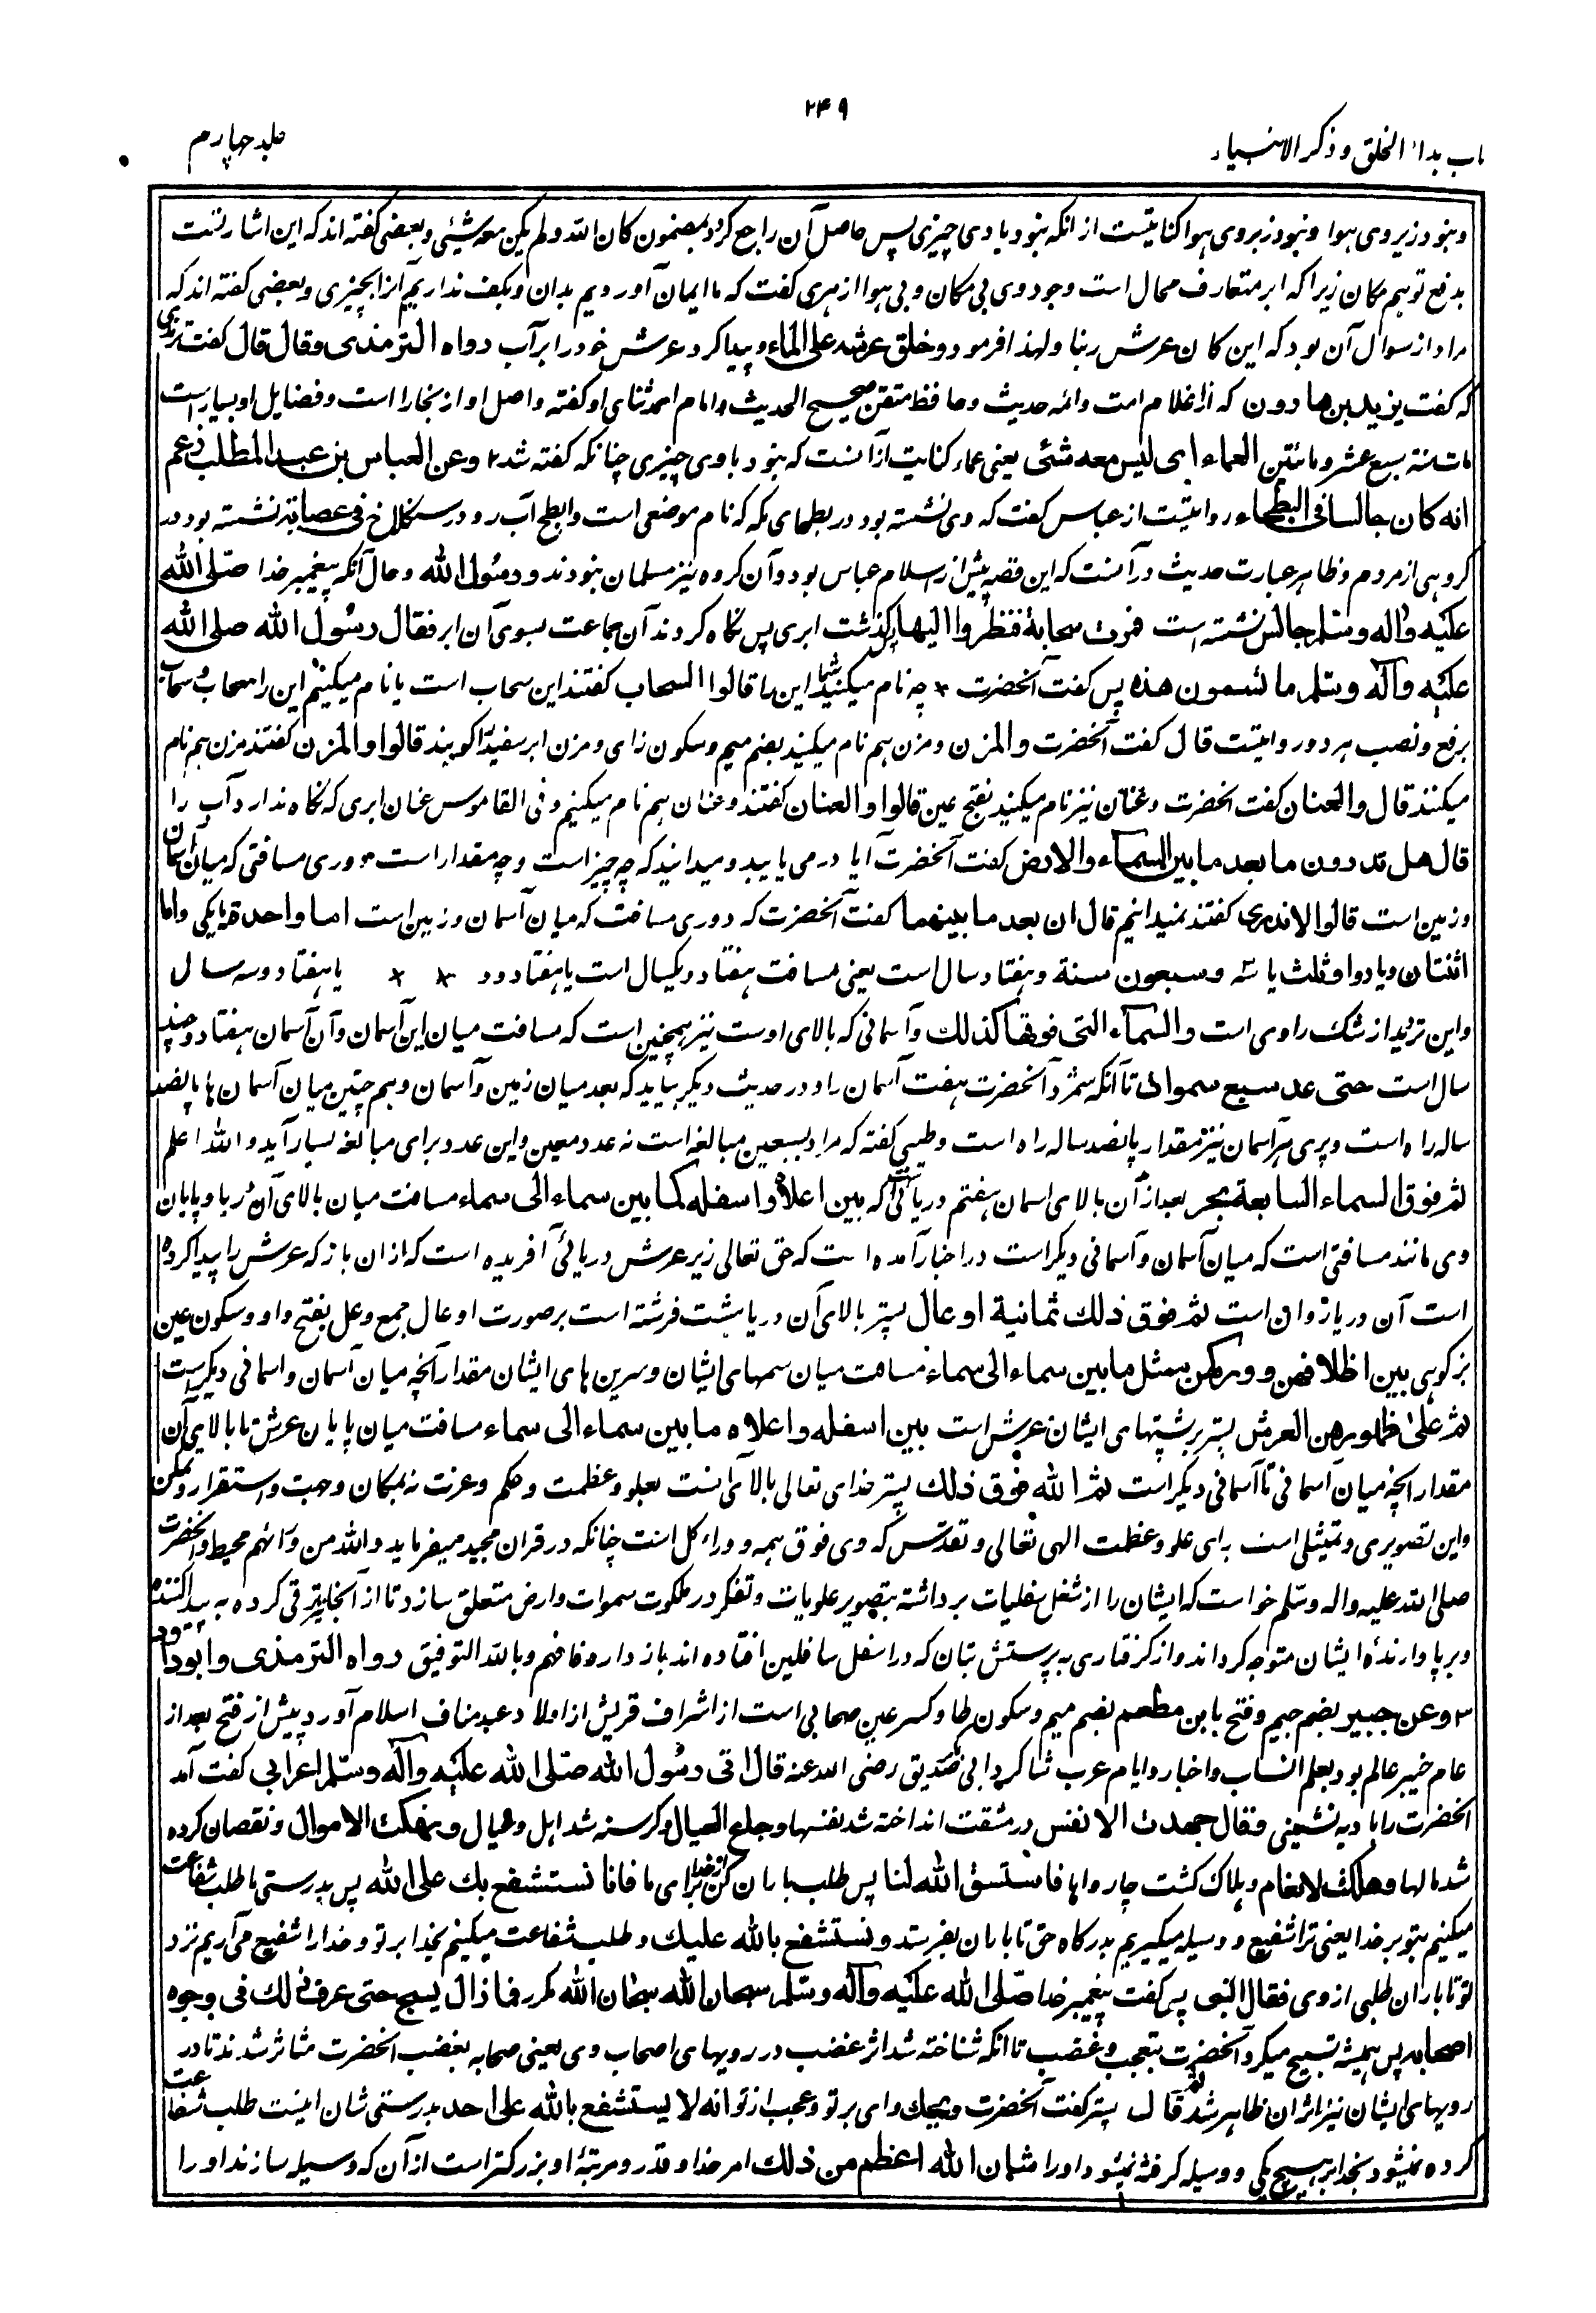 ۲۴۹
باب بداء الخلق و ذکر الانبیاء
جلد چهارم
و نبود زیر وی هوا و نبود زبر وی هوا کنایتست از انکه نبود با وی چیزی پس حاصل آن راجع گردد بمضمون کان الله و لم یکن معه شیئی و بعضی گفته اند که این اشارتست
بدفع توهم مکان زیرا که ابر متعارف محال است وجود وی بی مکان و بی هوا ازهری گفت که ما ایمان آوردیم بدان و بکیف نداریم آنرا بچیزی و بعضی گفته اند که
مراد از سوال آن بود که این کان عرش ربنا و لهذا فرمود و خلق عرشه علی الماء و پیدا کرد عرش خود را بر آب رواه الترمذی و قال قال گفت ترمذی
که گفت یزید بن هارون که از اعلام امت و ائمه حدیث و حافظ متقن صحیح الحدیث و امام احمد ثنای او گفته و اصل او از بخارا است و فضایل او بسیار است
مات سنة سبع عشر و مائتین العماء ای لیس معه شئی یعنی عماء کنایت از آنست که نبود با وی چیزی چنانکه گفته شد ۲ و عن العباس بن عبد المطلب زعم
انه کان جالسا فی البطحاء روایتست از عباس گفت که وی نشسته بود در بطحای مکه که نام موضعی است و ابطح آب رو در سنگلاخ فی عصابة نشسته بود در
گروهی از مردم و ظاهر عبارت حدیث در آنست که این قصه پیش از اسلام عباس بود و آن گروه نیز مسلمان نبودند و رسول الله و حال آنکه پیغمبر خدا صلی الله
علیه و اله و سلم جالس نشسته است فمرت سحابة فنظروا الیها پس گذشت ابری پس نگاه کردند آن جماعت بسوی آن ابر فقال رسول الله صلی الله
علیه و آله و سلم ما تسمون هذه پس گفت آنحضرت چه نام میکنید شما این را قالوا السحاب گفتند این سحاب است یا نام میکنیم این را سحاب و سحاب
برفع و نصب هر دو روایتست قال گفت آنحضرت و المزن و مزن هم نام میکنید بضم میم و سکون زای و مزن ابر سفید را گویند قالوا و المزن گفتند مزن هم نام
میکنند قال و العنان گفت انحضرت و عنان نیز نام میکنید بفتح عین قالوا و العنان گفتند و عنان هم نام میکنیم و فی القاموس عنان ابری که نگاه ندارد آب را
قال هل تدرون ما بعد ما بین السماء و الارض گفت آنحضرت آیا در می یابید و میدانید که چه چیز است و چه مقدار است دوری مسافتی که میان آسمان
و زمین است قالوا لا ندری گفتند نمیدانیم قال ان بعد ما بینهما گفت آنحضرت که دوری مسافت که میان آسمان و زمین است اما واحدة یا یکی و اما
اثنتان و یا دو او ثلث یا سه و سبعون سنة و هفتاد سال است یعنی مسافت هفتاد و یکسال است یا هفتاد و دو یا هفتاد و سه سال
و این تردید از شک راوی است و السماء التی فوقها کذلک و آسمانی که بالای اوست نیز همچنین است که مسافت میان این آسمان و آن آسمان هفتاد و چند
سال است حتی عد سبع سموات تا آنکه شمرد آنحضرت هفت آسمان را و در حدیث دیگر بیاید که بعد میان زمین و آسمان و هم چنین میان آسمان ها پانصد
ساله راه است و پری هر آسمان نیز مقدار پانصد ساله راه است و طیبی گفته که مراد بسبعین مبالغه است نه عدد معین و این عدد برای مبالغه بسیار آید و الله اعلم
ثم فوق السماء السابعة بحر بعد از آن بالای اسمان هفتم دریائی است که بین اعلاه و اسفله کما بین سماء الی سماء مسافت میان بالای آن دریا و پایان
وی مانند مسافتی است که میان آسمان و آسمانی دیگر است در اخبار آمده است که حق تعالی زیر عرش دریائی آفریده است که از ان باز که عرش را پیدا کرده
است آن دریا روان است ثم فوق ذلک ثمانیة اوعال پستر بالای آن دریا هشت فرشته است بر صورت اوعال جمع وعل بفتح واو و سکون عین
بز کوهی بین اظلافهن و ورکهن مثل ما بین سماء الی سماء مسافت میان سمهای ایشان و سرین های ایشان مقدار آنچه میان آسمان و اسمانی دیگر است
ثم علی ظهورهن العرش پستر بر پشتهای ایشان عرش است بین اسفله و اعلاه ما بین سماء الی سماء مسافت میان پایان عرش تا بالای آن
مقدار آنچه میان آسمانی تا آسمانی دیگر است ثم الله فوق ذلک پستر خدای تعالی بالای آنست بعلو و عظمت و حکم و عزت نه بمکان و جهت و استقرار و تمکن
و این تصویری و تمثیلی است برای علو و عظمت الهی تعالی و تقدس که وی فوق همه و وراء کل است چنانکه در قران مجید میفرماید و الله من ورائهم محیط و آنحضرت
صلی الله علیه و اله و سلم خواست که ایشان را از شغل سفلیات برداشته بتصویر علویات و تفکر در ملکوت سموات و ارض متعلق سازد تا از آنجا پیشتر ترقی کرده به پیدا کننده
و برپا دارنده ایشان متوجه گرداند و از گرفتاری به پرستش بتان که در اسفل سافلین افتاده اند باز دارد فافهم و بالله التوفیق رواه الترمذی و ابو داود
۳ و عن جبیر بضم جیم و فتح با بن مطعم بضم میم و سکون طا و کسر عین صحابی است از اشراف قریش از اولاد عبد مناف اسلام آورد پیش از فتح بعد از
عام خیبر عالم بود بعلم انساب و اخبار و ایام عرب شاگرد ابی بکر صدیق رضی الله عنه قال اتی رسول الله صلی الله علیه و آله و سلم اعرابی گفت آمد
انحضرت را بادیه نشینی فقال جهدت الانفس در مشقت انداخته شد نفسها و جاع العیال و گرسنه شد اهل و عیال و نهکت الاموال و نقصان کرده
شد مالها و هلکت الانعام و هلاک گشت چاروا ها فاستسق الله لنا پس طلب باران کن از خدا برای ما فانا نستشفع بک علی الله پس بدرستی ما طلب شفاعت
میکنیم بتو بر خدا یعنی ترا شفیع و وسیله میگیریم بدرگاه حق تا باران بفرستد و نستشفع بالله علیک و طلب شفاعت میکنیم بخدا بر تو و خدا را شفیع می آریم نزد
تو تا باران طلبی از وی فقال النبی پس گفت پیغمبر خدا صلی الله علیه و آله و سلم سبحان الله سبحان الله مکرر فما زال یسبح حتی عرف ذلک فی وجوه
اصحابه پس همیشه تسبیح میکرد آنحضرت بتعجب و غضب تا انکه شناخته شد اثر غضب در رویهای اصحاب وی یعنی صحابه بغضب انحضرت متاثر شدند تا در
رویهای ایشان نیز اثر ان ظاهر شد ثم قال پستر گفت آنحضرت ویحک وای بر تو و عجب از تو انه لا یستشفع بالله علی احد بدرستی شان اینست طلب شفاعت
کرده نمیشود بخدا بر هیچ یکی و وسیله گرفته نمیشود او را شان الله اعظم من ذلک امر خدا و قدر و مرتبهٔ او بزرگتر است از آن که وسیله سازند او را